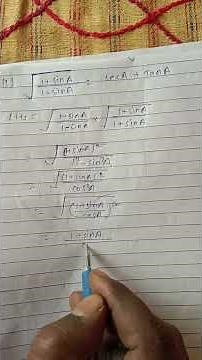 √(1+sinA / 1-sinA) = secA + tanA
LHS = √(1+sinA / 1-sinA) × √(1+sinA / 1+sinA)
= √((1+sinA)² / 1²-sin²A)
= √((1+sinA)² / cos²A)
= √((1+sinA / cosA)²)
= 1+sinA